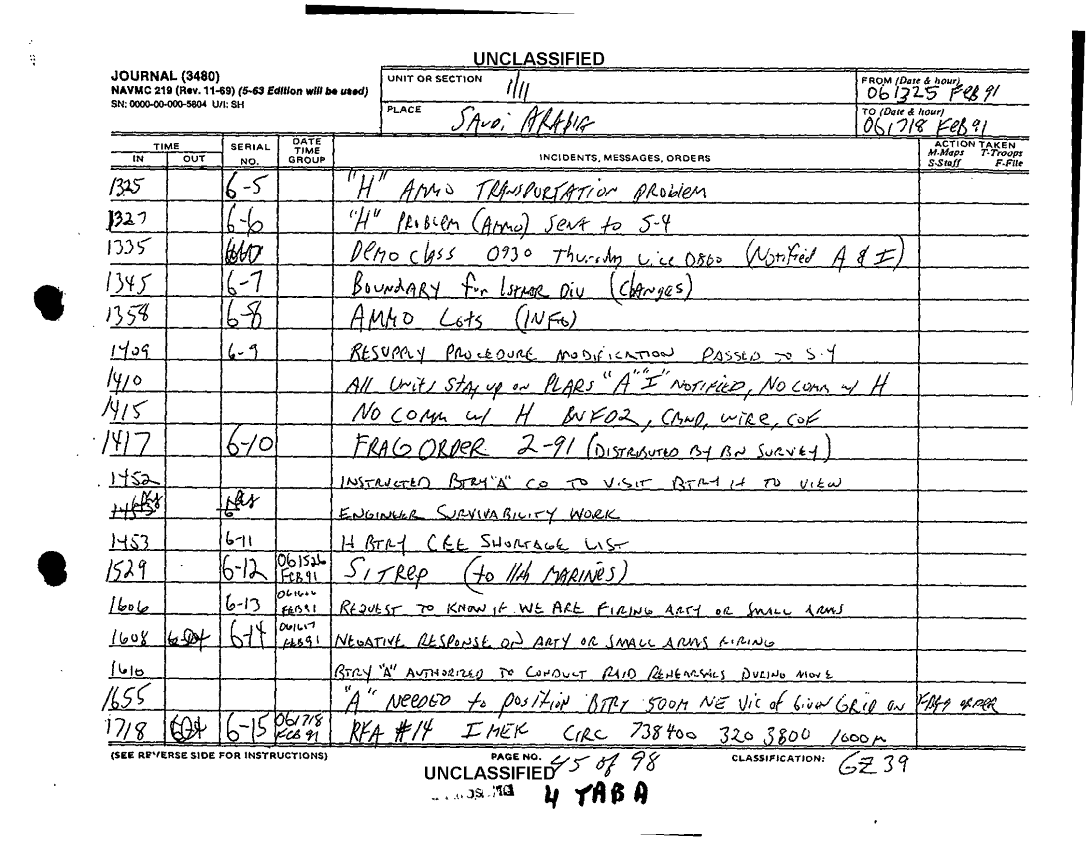 UNCLASSIFIED
JOURNAL (3480)
NAVMC 219 (Rev. 11-69) (5-63 Edition will be used)
SN: 0000-00-000-5804 U/I: SH
UNIT OR SECTION 1/11
PLACE SAUDi ARABIA
FROM (Date & hour) 061325 Feb 91
TO (Date & hour) 061718 Feb 91
TIME IN OUT SERIAL NO. DATE TIME GROUP INCIDENTS, MESSAGES, ORDERS ACTION TAKEN M-Maps T-Troops S-Staff F-File
1325 6-5 "H" AMMO TRANSPORTATION PROBLEM
1327 6-6 "H" PROBLEM (AMMO) SENT to S-4
1335 DEMO class 0930 Thursday vice 0800 (Notified A & I)
1345 6-7 BOUNDARY for 1stMAR DIV (Changes)
1358 6-8 AMMO Lots (INFO)
1409 6-9 RESUPPLY PROCEDURE MODIFICATION PASSED TO S-4
1410 All Units Stay up on PLARS "A" "I" NOTIFIED, No Comm w/ H
1415 NO COMM w/ H BNFD2, CMND, WIRE, COF
1417 6-10 FRAG ORDER 2-91 (DISTRIBUTED BY BN SURVEY)
1452 INSTRUCTED BTRY "A" CO TO VISIT BTRY H TO VIEW
ENGINEER SURVIVABILITY WORK
1453 6-11 H BTRY CEE SHORTAGE LIST
1529 6-12 061526 FEB91 SITREP (to 11th MARINES)
1606 6-13 061606 FEB91 REQUEST TO KNOW IF WE ARE FIRING ARTY OR SMALL ARMS
1608 6-14 061617 FEB91 NEGATIVE RESPONSE ON ARTY OR SMALL ARMS FIRING
1610 BTRY "A" AUTHORIZED TO CONDUCT RAID REHEARSALS DURING MOVE
1655 "A" NEEDED to position BTRY 500M NE Vic of Given GRID on FRAG ORDER
1718 6-15 061718 FEB91 RFA #14 I MEF CIRC 738400 320 3800 1000m
(SEE REVERSE SIDE FOR INSTRUCTIONS)
PAGE NO. 45 of 98
CLASSIFICATION: GZ 39
UNCLASSIFIED
4 TAB A